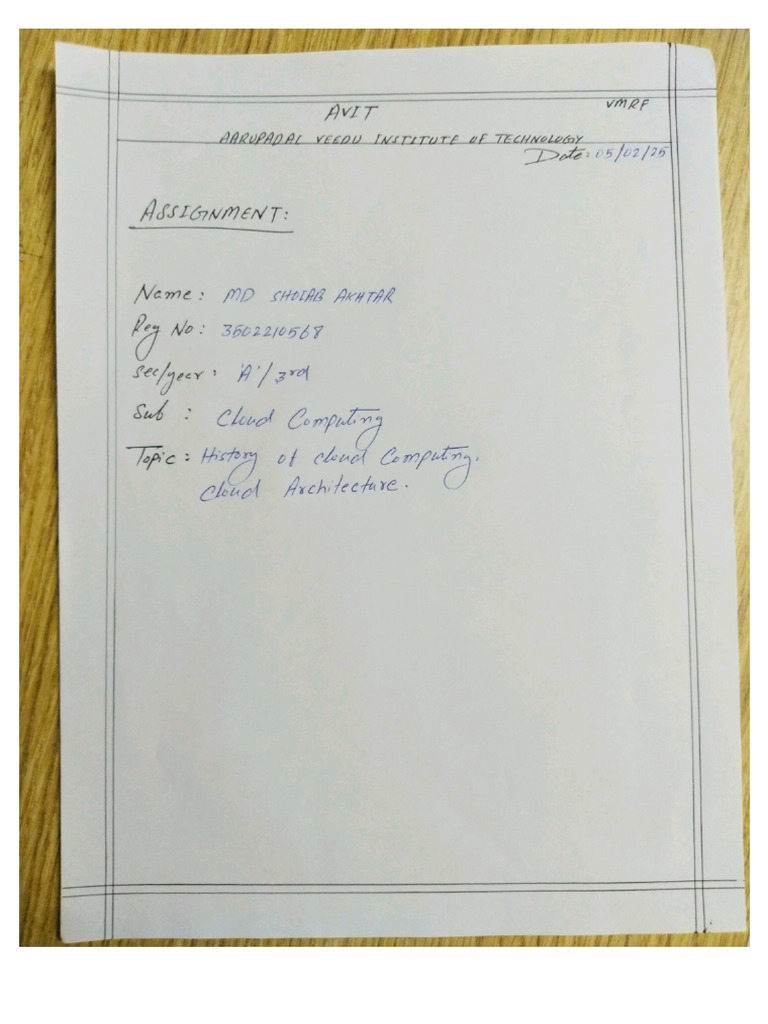 AVIT
VMRF
AARUPADAI VEEDU INSTITUTE OF TECHNOLOGY
Date: 05/02/25
ASSIGNMENT:
Name: MD SHOIAB AKHTAR
Reg No: 3502210568
Sec/year: 'A'/3rd
Sub: Cloud Computing
Topic: History of cloud Computing.
Cloud Architecture.